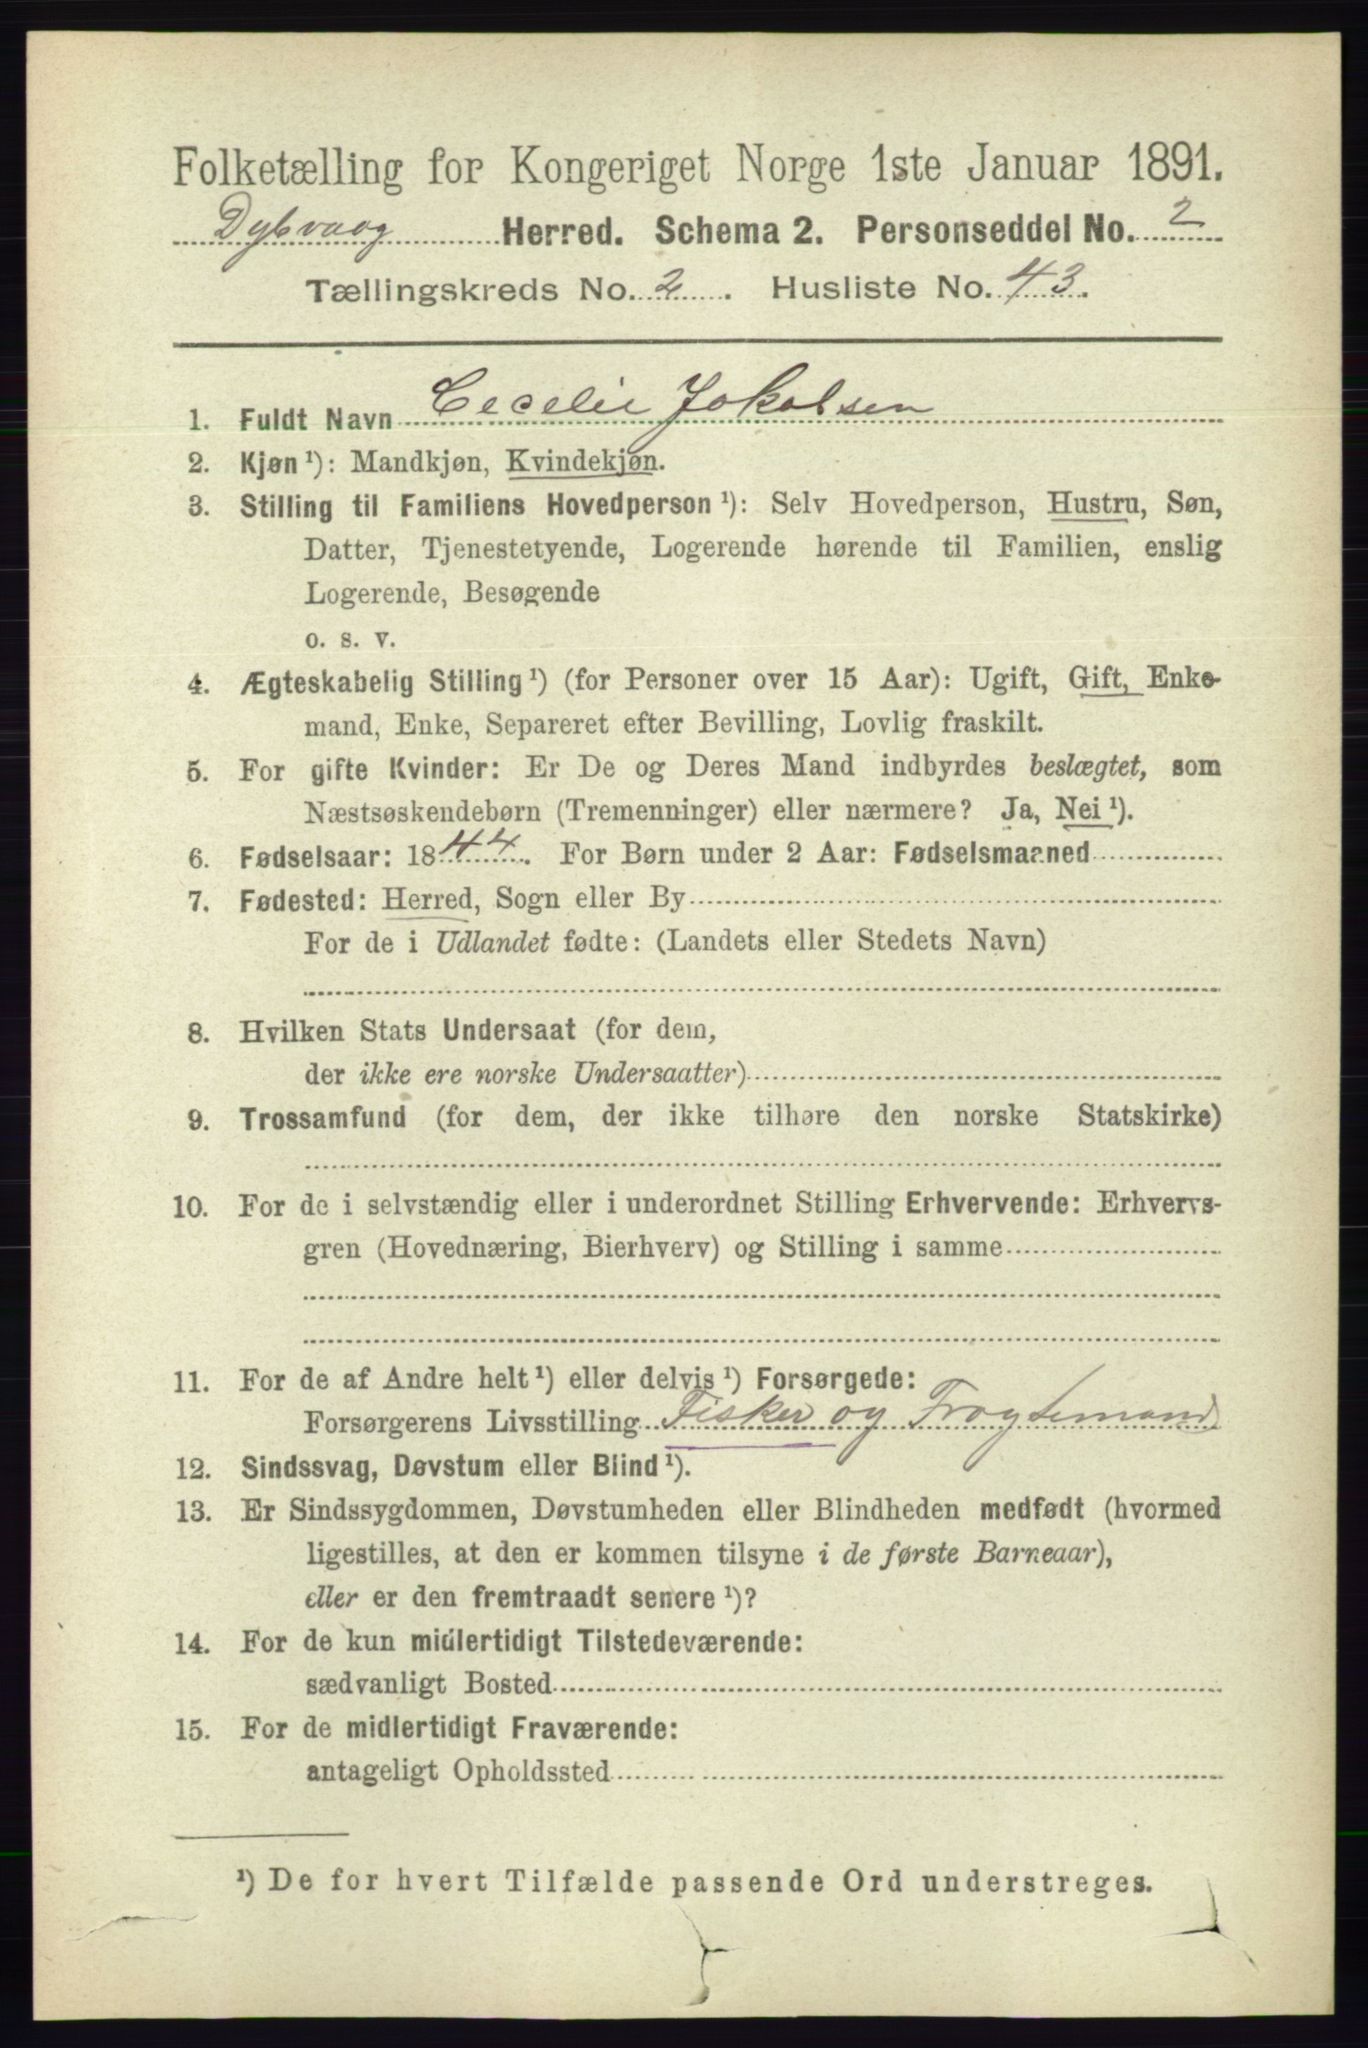 Folketælling for Kongeriget Norge 1ste Januar 1891.
Dybvaag Herred. Schema 2. Personseddel No. 2
Tællingskreds No. 2. Husliste No. 43.
1. Fuldt Navn Cecelie Jakobsen
2. Kjøn ¹): Mandkjøn, Kvindekjøn.
3. Stilling til Familiens Hovedperson ¹): Selv Hovedperson, Hustru, Søn,
Datter, Tjenestetyende, Logerende hørende til Familien, enslig
Logerende, Besøgende
o. s. v.
4. Ægteskabelig Stilling ¹) (for Personer over 15 Aar): Ugift, Gift, Enke-
mand, Enke, Separeret efter Bevilling, Lovlig fraskilt.
5. For gifte Kvinder: Er De og Deres Mand indbyrdes beslægtet, som
Næstsøskendebørn (Tremenninger) eller nærmere? Ja, Nei ¹).
6. Fødselsaar: 1844. For Børn under 2 Aar: Fødselsmaaned
7. Fødested: Herred, Sogn eller By
For de i Udlandet fødte: (Landets eller Stedets Navn)
8. Hvilken Stats Undersaat (for dem,
der ikke ere norske Undersaatter)
9. Trossamfund (for dem, der ikke tilhøre den norske Statskirke)
10. For de i selvstændig eller i underordnet Stilling Erhvervende: Erhvervs-
gren (Hovednæring, Bierhverv) og Stilling i samme
11. For de af Andre helt ¹) eller delvis ¹) Forsørgede:
Forsørgerens Livsstilling Fisker og Fragtemand
12. Sindssvag, Døvstum eller Blind ¹).
13. Er Sindssygdommen, Døvstumheden eller Blindheden medfødt (hvormed
ligestilles, at den er kommen tilsyne i de første Barneaar),
eller er den fremtraadt senere ¹)?
14. For de kun midlertidigt Tilstedeværende:
sædvanligt Bosted
15. For de midlertidigt Fraværende:
antageligt Opholdssted
¹) De for hvert Tilfælde passende Ord understreges.